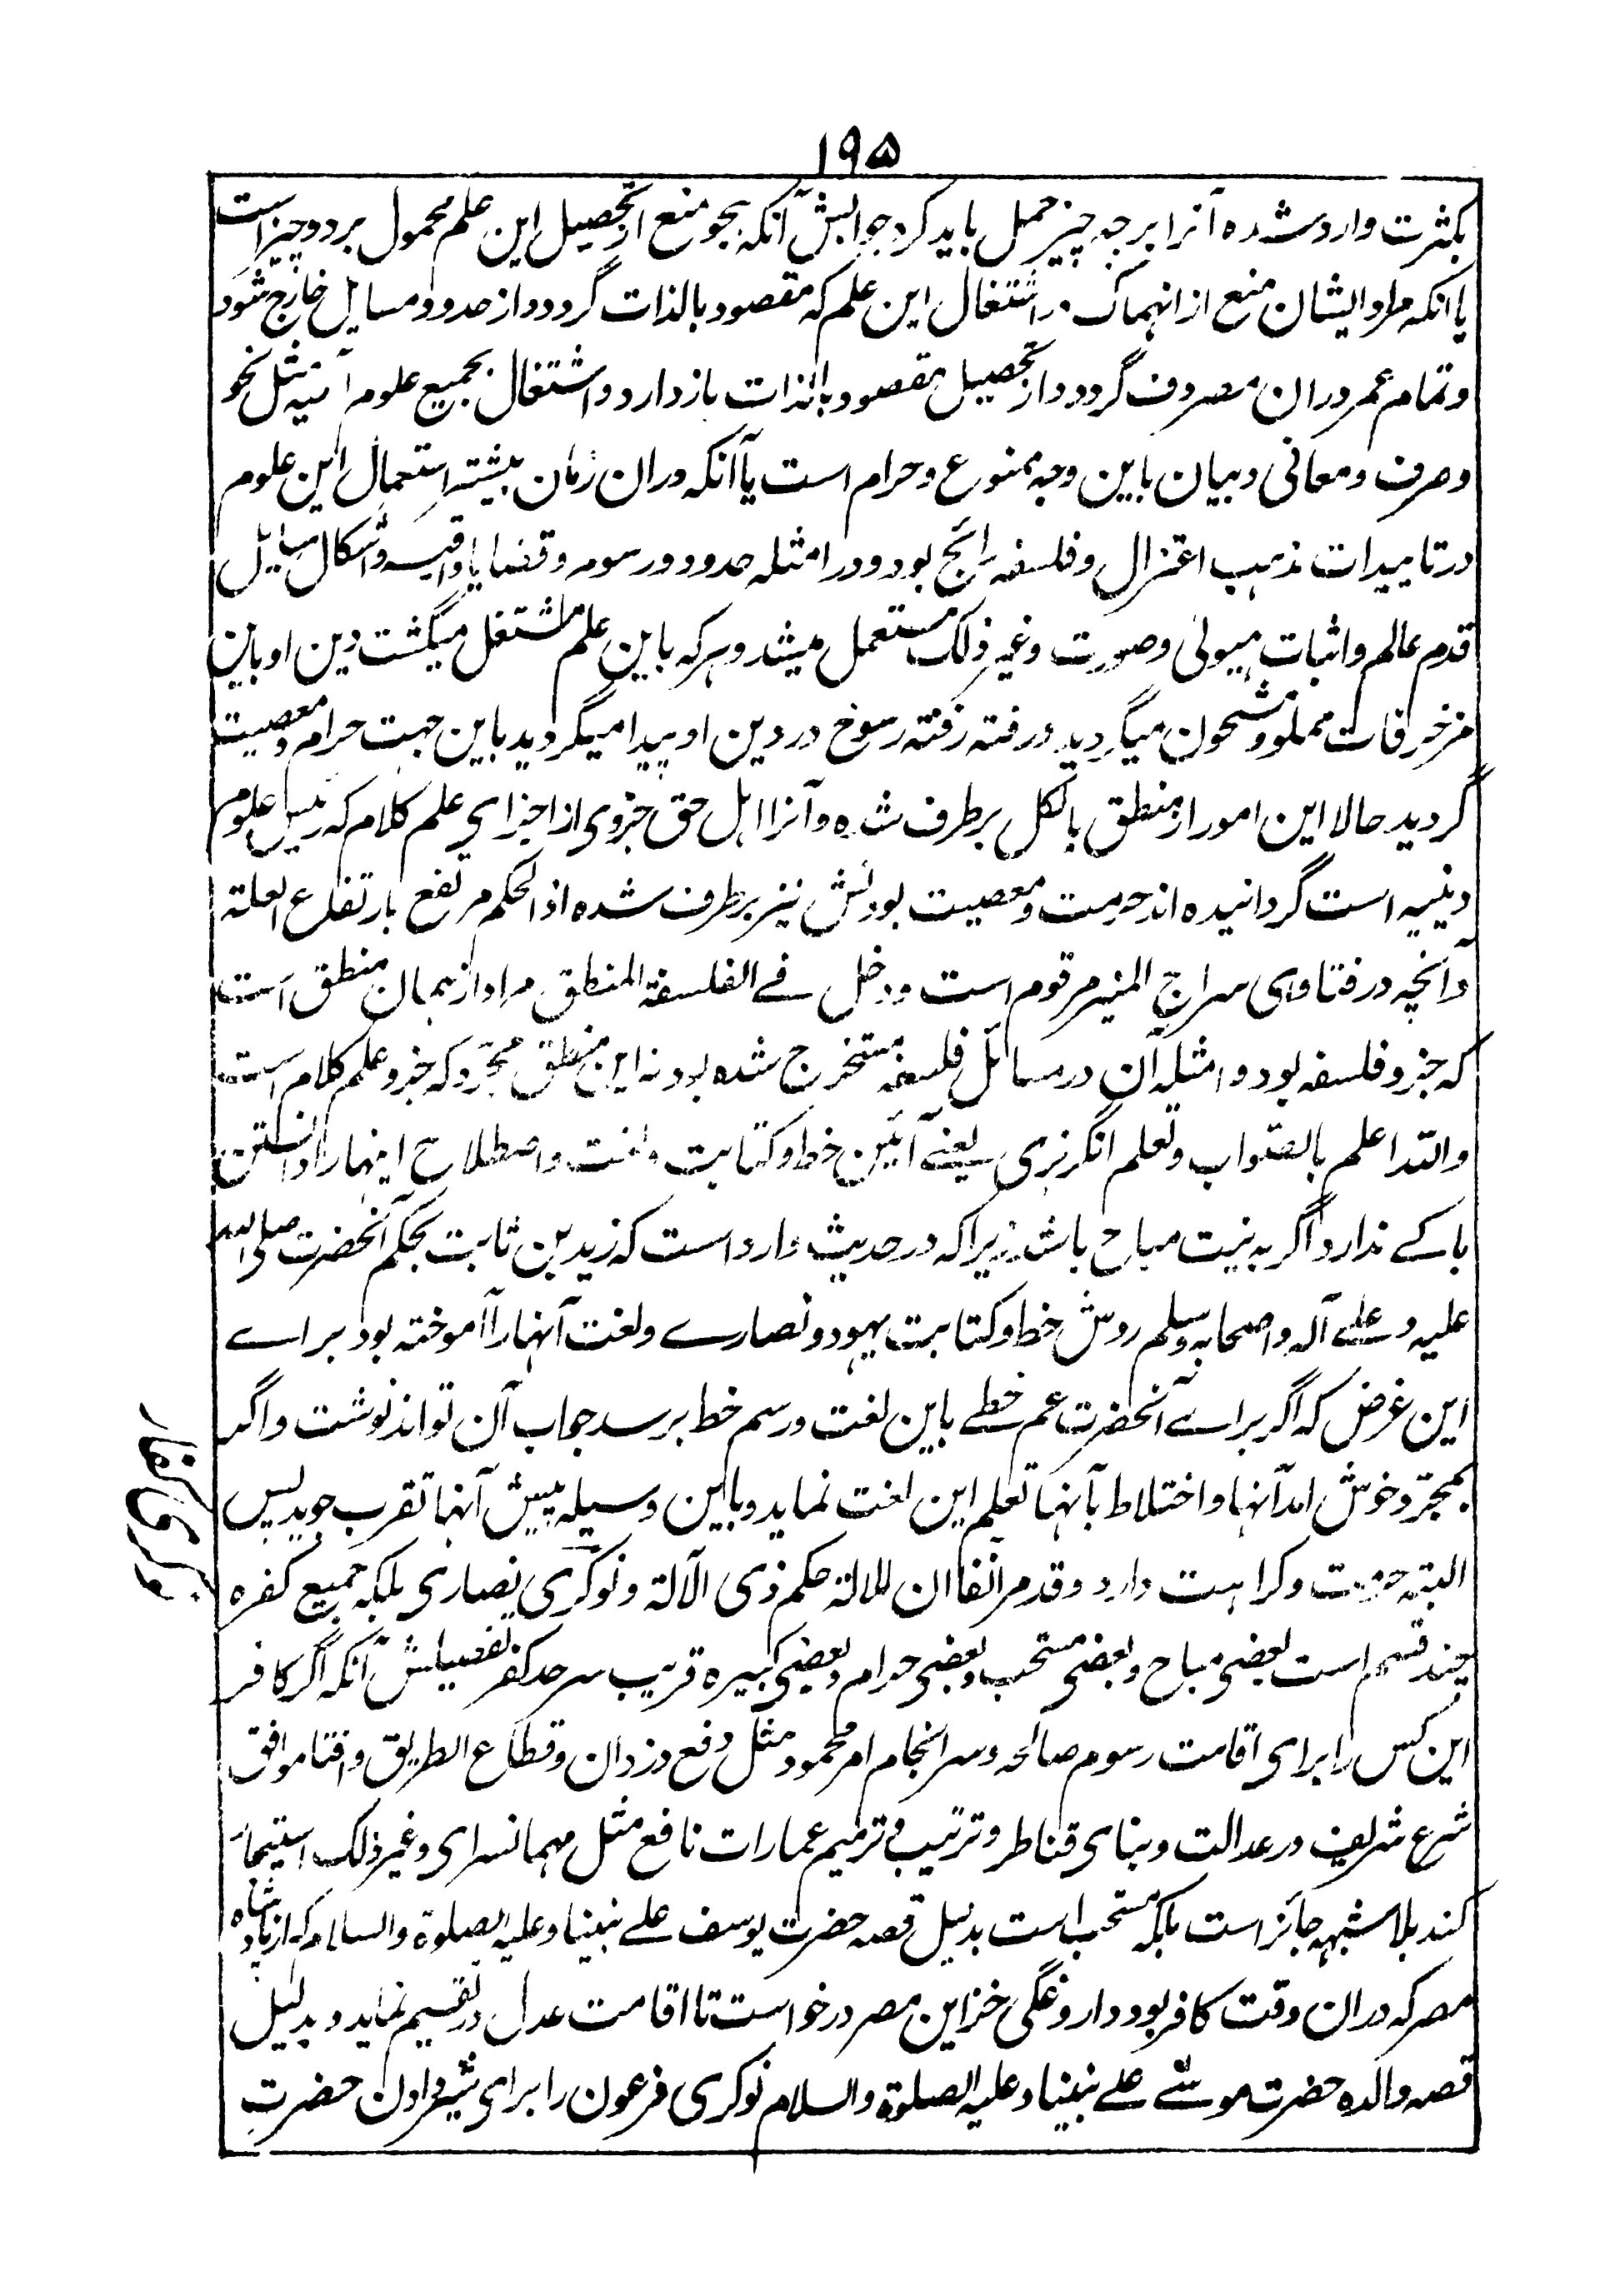 ۱۹۵
بکثرت وارد شده آنرا بر چه چیز حمل باید کرد جوابش آنکه بجو منع از تحصیل این علم محمول بر دو چیز است
یا آنکه مراد ایشان منع از انهماک در اشتغال این علم که مقصود بالذات گردد و از حد وسایل خارج شود
و تمام عمر دران مصروف گردد و از تحصیل مقصود بالذات باز دارد و اشتغال بجمیع علوم آلیه مثل نحو
و صرف و معانی و بیان باین وجه ممنوع و حرام است یا آنکه دران زمان بیشتر استعمال این علوم
در تاییدات مذهب اعتزال و فلسفه رائج بود و در امثله حدود و رسوم و قضایا و اقیسه و اشکال مسایل
قدم عالم و اثبات هیولی و صورت و غیر ذلک مستعمل میشد و هر که باین علم مشتغل میگشت دین او باین
مزخرفات مملو و مشحون میگردید و رفته رفته رسوخ در دین او پیدا میگردید باین جهت حرام و معصیت
گردید حالا این امور از منطق بالکل برطرف شده و آنرا اهل حق جزوی از اجزای علم کلام که رئیس علوم
دینیه است گردانیده اند حرمت و معصیت بودنش نیز برطرف شده اذ الحکم مرتفع بارتفاع العلة
و آنچه در فتاوی سراج المنیر مرقوم است ودخل فی الفلسفة المنطق مراد از همان منطق است
که جزو فلسفه بود و امثله آن در مسائل فلسفه مستخرج شده بود نه این منطق مجرد که جزو علم کلام است
والله اعلم بالصواب و تعلم انگریزی یعنے آئین خط و کتابت و لغت و اصطلاح اینها را دانستن
باکے ندارد اگر به نیت مباح باشد زیرا که در حدیث وارد است که زید بن ثابت بحکم آنحضرت صلی الله
علیه و علے آله و اصحابه وسلم روش خط و کتابت یهود و نصارے و لغت آنها را آموخته بود براے
این غرض که اگر براے آنحضرت عم خطے باین لغت و رسم خط برسد جواب آن تواند نوشت و اگر
بمجرد خوش آمد آنها و اختلاط بآنها تعلم این لغت نماید و باین وسیله پیش آنها تقرب جوید پس
البته حرمت و کراهت دارد و قد مر آنفا ان للآلة حکم ذی الآلة و نوکری نصاری بلکه جمیع کفره
چند قسم است بعضی مباح و بعضی مستحب و بعضی حرام و بعضی کبیره قریب سرحد کفر تفصیلش آنکه اگر کافر
این کس را برای اقامت رسوم صالحه و سرانجام امر محمود مثل دفع دزدان و قطاع الطریق و افتا موافق
شرع شریف در عدالت و بنای قناطر و ترتیب و ترمیم عمارات نافع مثل مهمانسرای و غیر ذلک استیجار
کند بلا شبهه جائز است بلکه مستحب است بدلیل قصه حضرت یوسف علے نبینا و علیه الصلوة والسلام که از بادشاه
مصر که دران وقت کافر بود داروغگی خزاین مصر درخواست تا اقامت عدل در تقسیم نماید و بدلیل
قصه والده حضرت موسیٰ علے نبینا و علیه الصلوة والسلام نوکری فرعون را برای شیر دادن حضرت
نوکری کفار